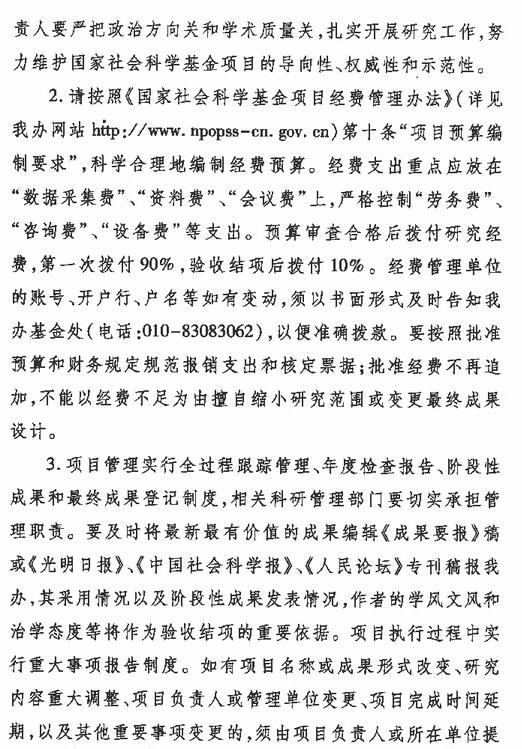 责人要严把政治方向关和学术质量关,扎实开展研究工作,努
力维护国家社会科学基金项目的导向性、权威性和示范性。
2. 请按照《国家社会科学基金项目经费管理办法》(详见
我办网站 http://www. npopss-cn. gov. cn)第十条“项目预算编
制要求”,科学合理地编制经费预算。经费支出重点应放在
“数据采集费”、“资料费”、“会议费”上,严格控制“劳务费”、
“咨询费”、“设备费”等支出。预算审查合格后拨付研究经
费,第一次拨付90%,验收结项后拨付10%。经费管理单位
的账号、开户行、户名等如有变动,须以书面形式及时告知我
办基金处(电话:010-83083062),以便准确拨款。要按照批准
预算和财务规定规范报销支出和核定票据;批准经费不再追
加,不能以经费不足为由擅自缩小研究范围或变更最终成果
设计。
3. 项目管理实行全过程跟踪管理、年度检查报告、阶段性
成果和最终成果登记制度,相关科研管理部门要切实承担管
理职责。要及时将最新最有价值的成果编辑《成果要报》稿
或《光明日报》、《中国社会科学报》、《人民论坛》专刊稿报我
办,其采用情况以及阶段性成果发表情况,作者的学风文风和
治学态度等将作为验收结项的重要依据。项目执行过程中实
行重大事项报告制度。如有项目名称或成果形式改变、研究
内容重大调整、项目负责人或管理单位变更、项目完成时间延
期,以及其他重要事项变更的,须由项目负责人或所在单位提